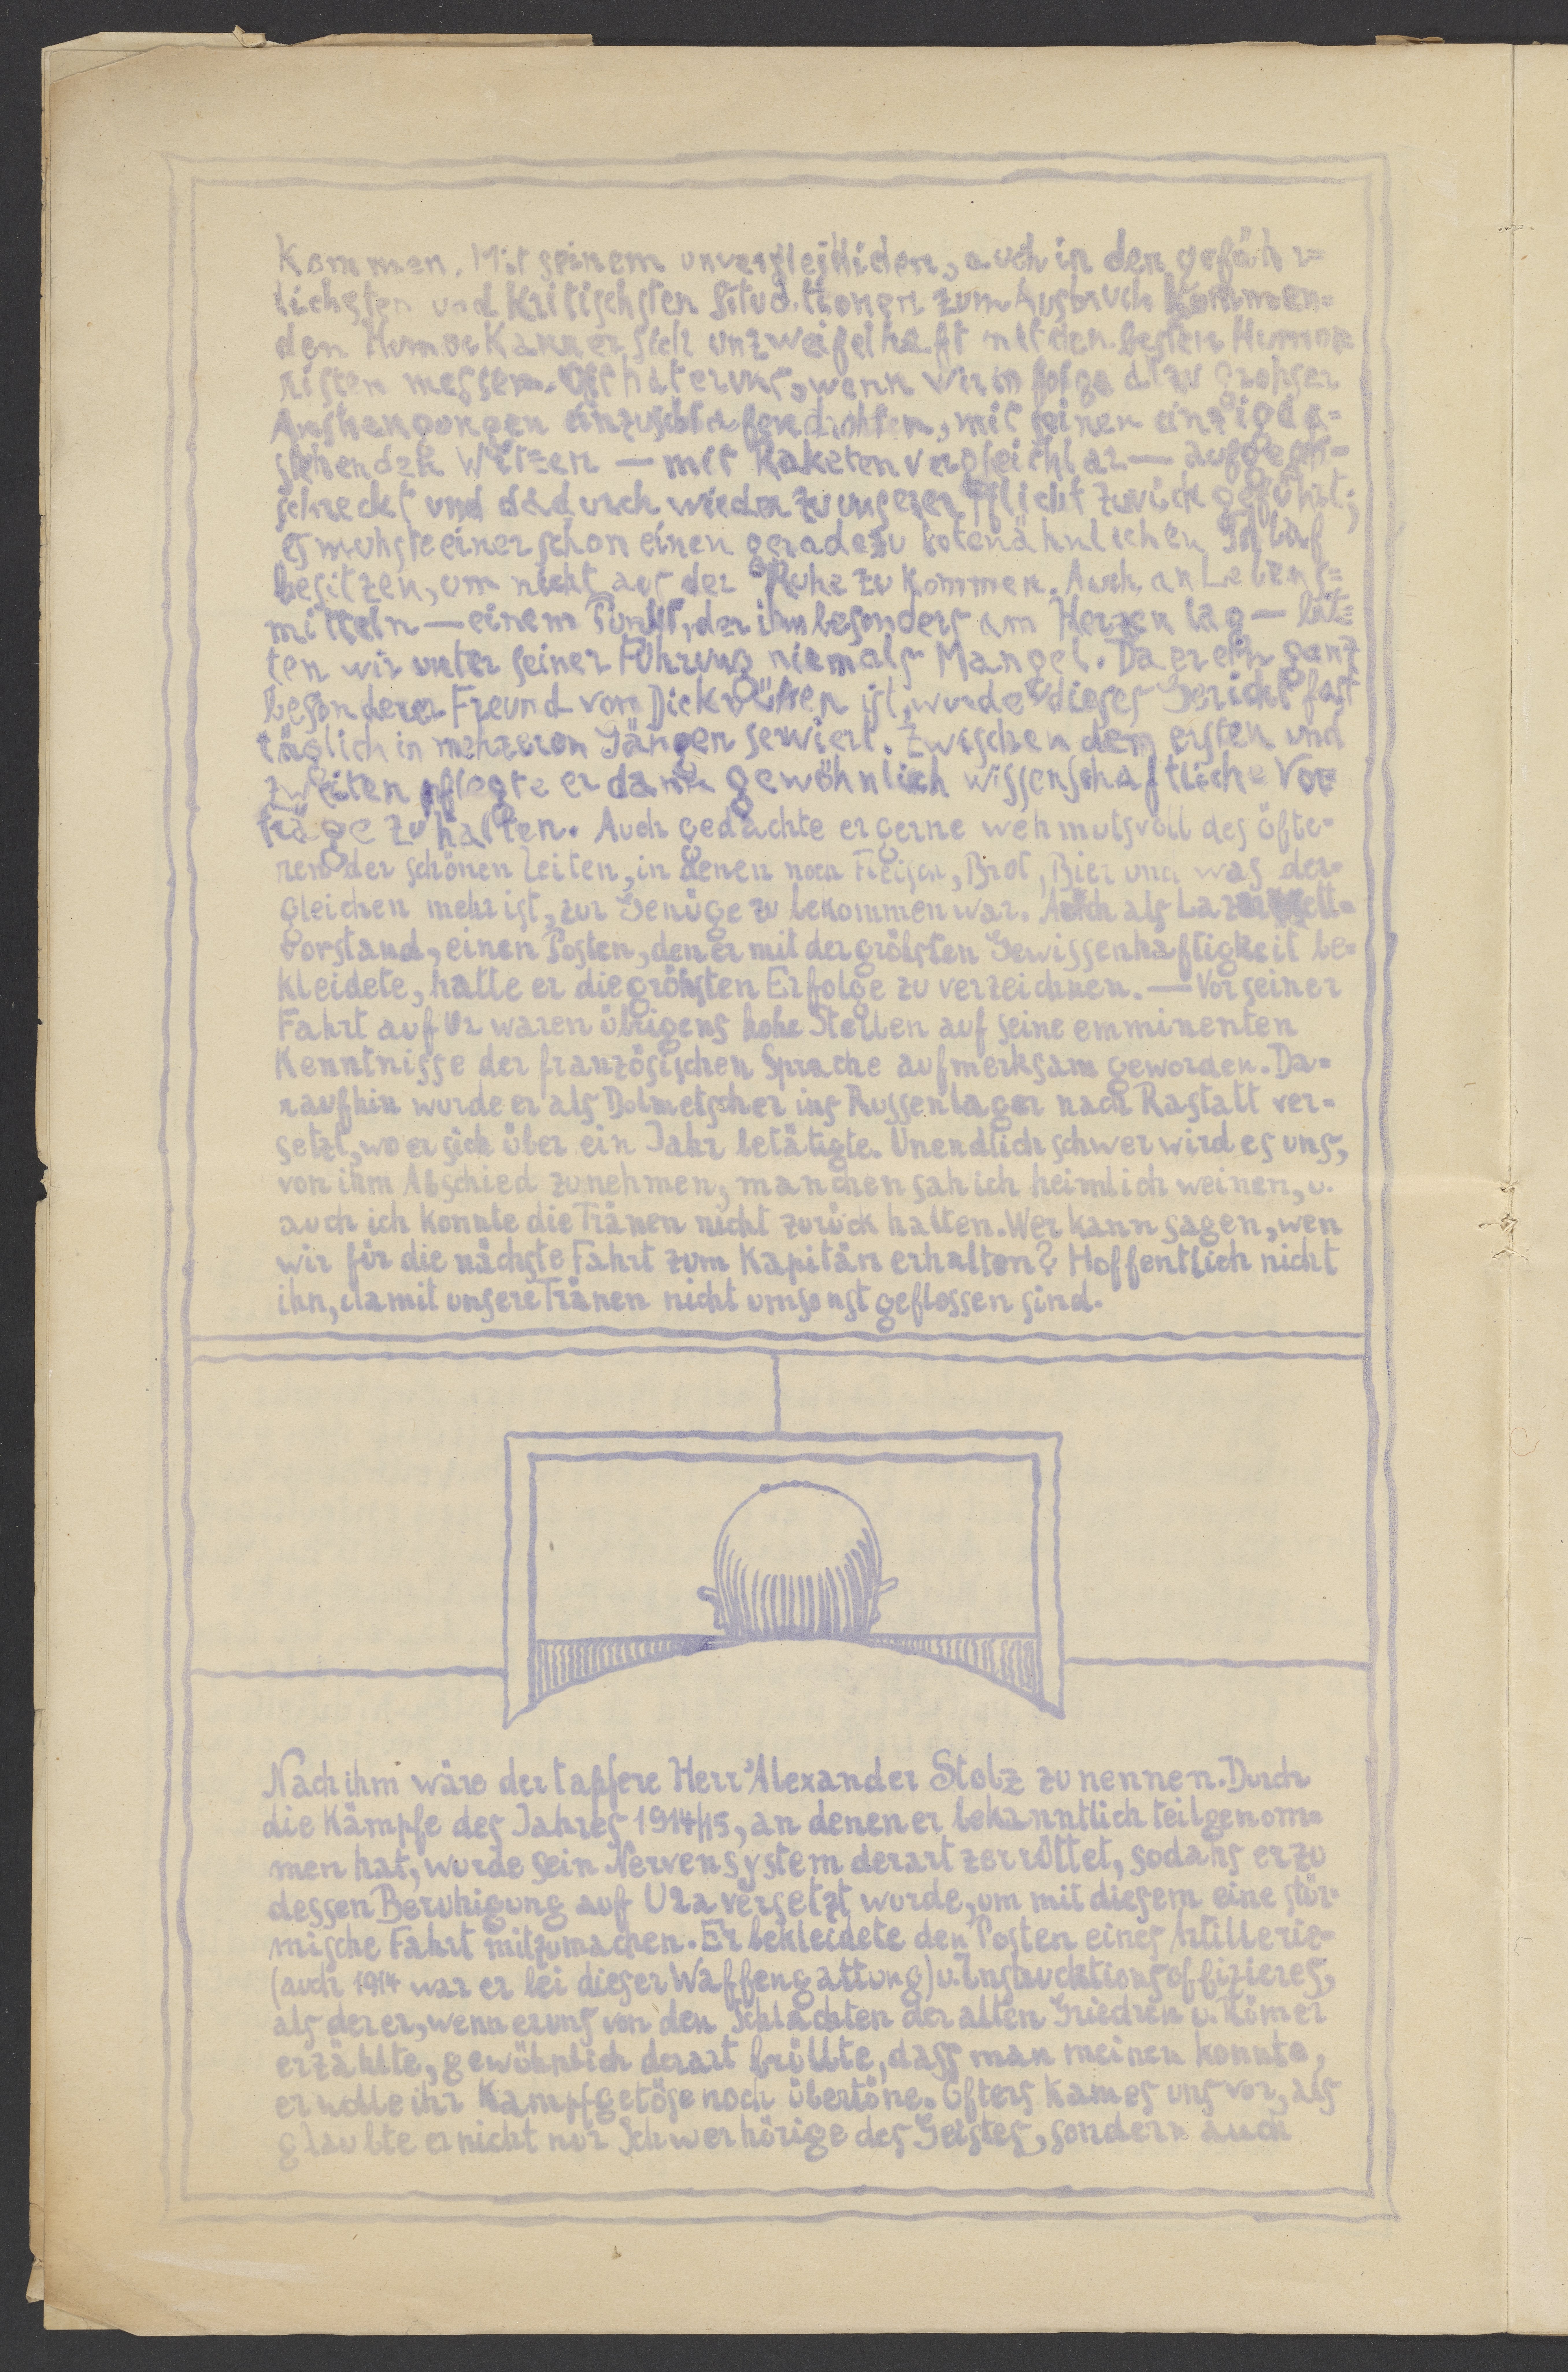 kommen. Mit seinem unvergleichlichen, auch in den gefähr=
lichsten und kritischsten Situationen zum Ausbruch kommen=
den Humor kann er sich unzweifelhaft mit den besten Humor
risten messen. Oft hat er uns, wenn wir infolge allzu grohser
Anstrengungen einzuschlafen drohten, mit seinen einzigda=
stehenden Witzen — mit Raketen vergleichbar — aufge
schreckt und dadurch wieder zu unserer Pflicht zurückgeführt;
es muhste einer schon einen geradezu totenähnlichen Schlaf
besitzen, um nicht aus der Ruhe zu kommen. Auch an Lebens=
mitteln — einem Punkt, der ihm besonders am Herzen lag — lit=
ten wir unter seiner Führung niemals Mangel. Da er ein ganz
besonderer Freund von Dickrüben ist, wurde dieses Gericht fast
täglich in mehreren Gängen serviert. Zwischen dem ersten und
zweiten pflegte er dann gewöhnlich wissenschaftliche Vor=
träge zu halten. Auch gedachte er gerne wehmutsvoll des öfte=
ren der schönen Zeiten, in denen noch Fleisch, Brot, Bier und was der=
gleichen mehr ist, zur Genüge zu bekommen war. Auch als Lazarett=
vorstand, einen Posten, den er mit der größten Gewissenhaftigkeit be=
kleidete, hatte er die gröhsten Erfolge zu verzeichnen. — Vor seiner
Fahrt auf Ur waren übrigens hohe Stellen auf seine emminenten
Kenntnisse der französischen Sprache aufmerksam geworden. Da=
raufhin wurde er als Dolmetscher ins Russenlager nach Rastatt ver=
setzt, wo er sich über ein Jahr betätigte. Unendlich schwer wird es uns,
von ihm Abschied zu nehmen, manchen sah ich heimlich weinen, u.
auch ich konnte die Tränen nicht zurück halten. Wer kann sagen, wen
wir für die nächste Fahrt zum Kapitän erhalten? Hoffentlich nicht
ihn, damit unsere Tränen nicht umsonst geflossen sind.
Nach ihm wäre der tapfere Herr Alexander Stolz zu nennen. Durch
die Kämpfe des Jahres 1914/15, an denen er bekanntlich teilgenom=
men hat, wurde sein Nervensystem derart zerrüttet, sodahs er zu
dessen Beruhigung auf Ura versetzt wurde, um mit diesem eine stür=
mische Fahrt mitzumachen. Er bekleidete den Posten eines Artillerie=
(auch 1914 war er bei dieser Waffengattung) u. Instrucktionsoffizieres,
als der er, wenn er uns von den Schlachten der alten Griechen u. Römer
erzählte, gewöhnlich derart brüllte, dass man meinen konnte,
er wolle ihr Kampfgetöse noch übertöne. Öfters kam es uns vor, als
glaubte er nicht nur Schwerhörige des Geistes, sondern auch